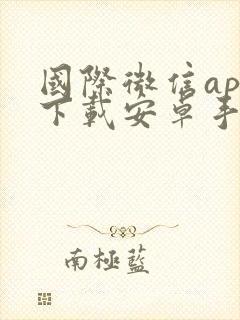 國際微信ap
下載安卓手
南極藍